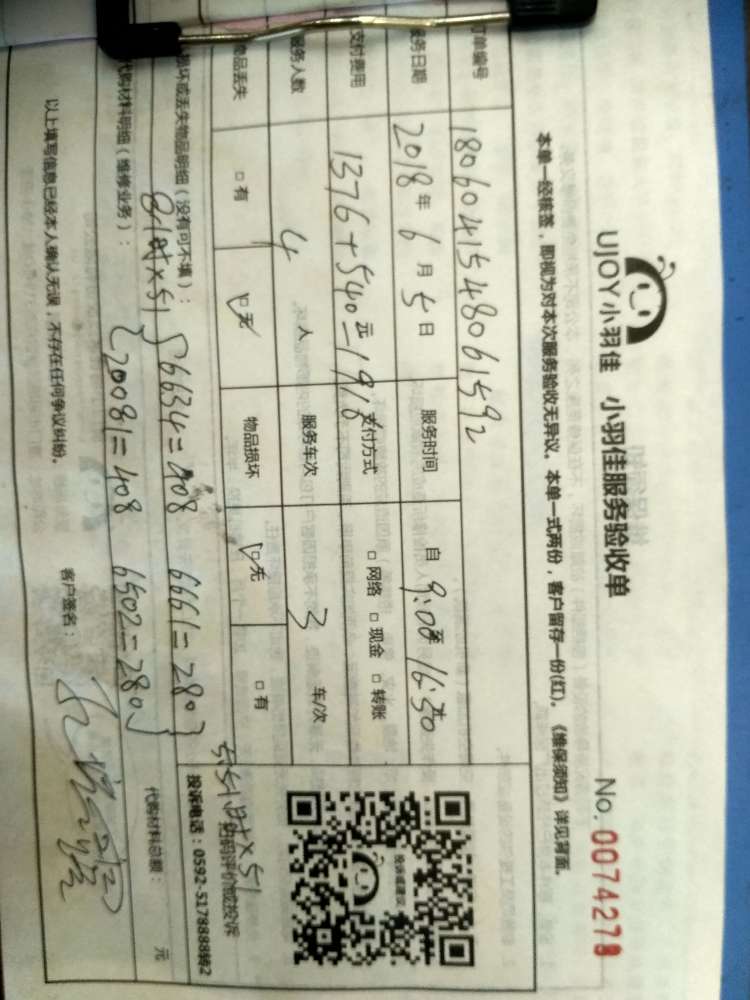 UJOY小羽佳 小羽佳服务验收单
No. 0074278
本单一经核签，即视为对本次服务验收无异议。本单一式两份，客户留存一份(红)。《维保须知》详见背面。
订单编号 1806041548061592
服务日期 2018年6月5日 服务时间 自 9:00至 16:30
支付费用 1376+540=1916 元 支付方式 □ 网络 □ 现金 □ 转账
服务人数 4 人 服务车次 3 车/次
物品丢失 □ 有 ☑ 无 物品损坏 ☑ 无 □ 有
投诉或建议
扫码评价或投诉
投诉电话：0592-5178888转2
损坏或丢失物品明细（没有可不填）：
8时×51 {6634=408 6661=280}
5.51时×51
代购材料明细（维修业务）：
{20081=408 6502=280}
代购材料总额： 元
以上填写信息已经本人确认无误，不存在任何争议纠纷。
客户签名：